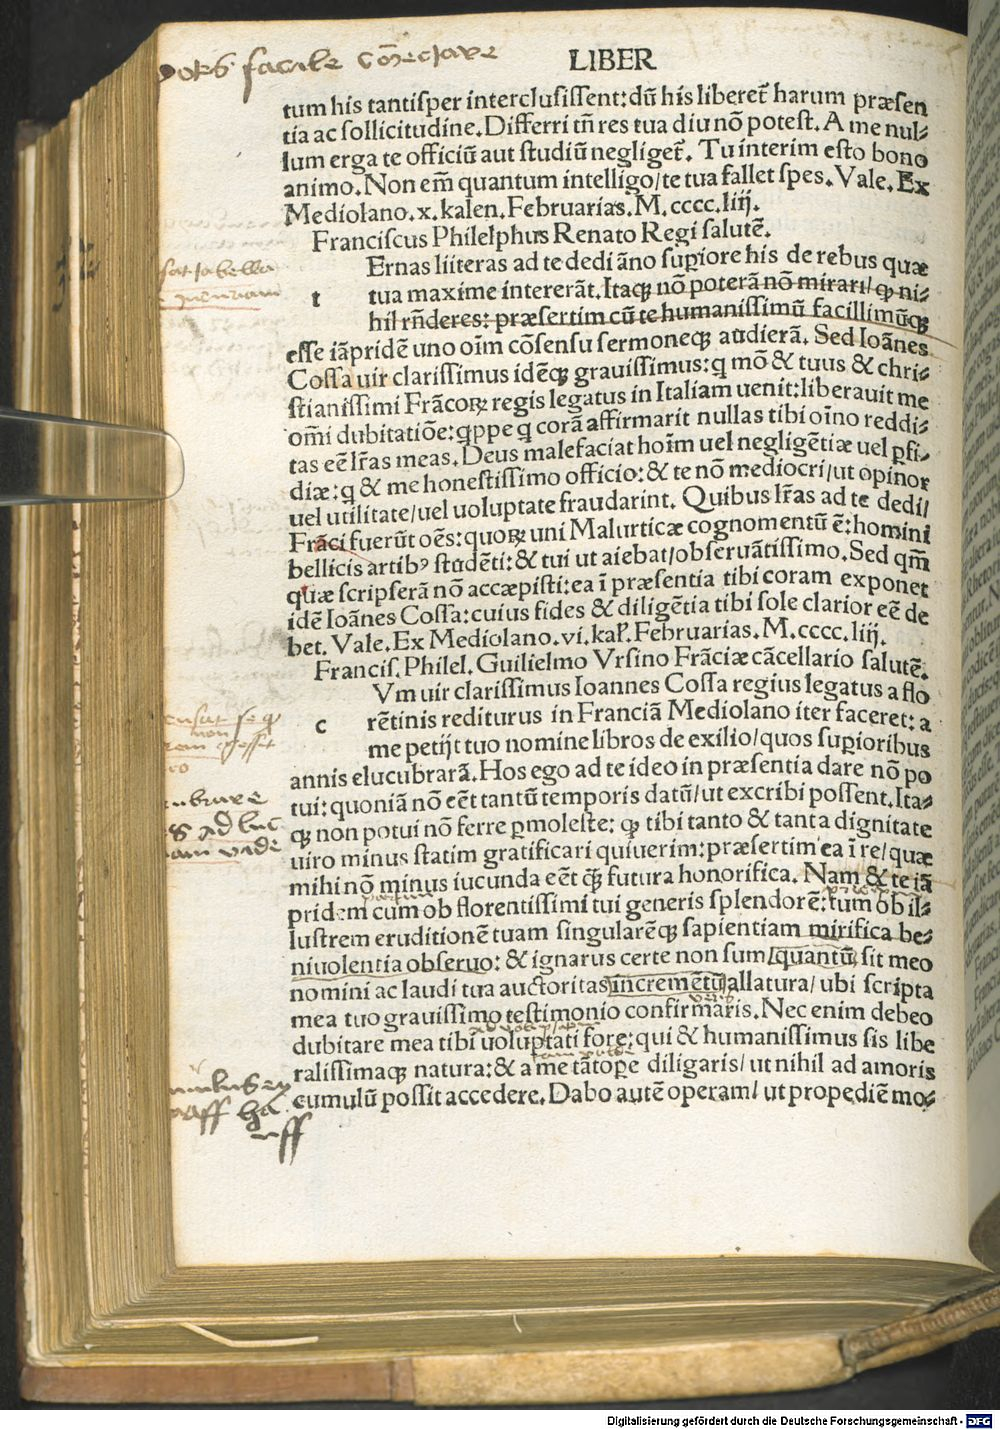 facile
LIBER
tum his tantisper interclusissent: dū his liberet᷑ harum præsen
tia ac sollicitudine. Differri tn̄ res tua diu nō potest. A me nul⸗
lum erga te officiū aut studiū negliget᷑. Tu interim esto bono
animo. Non em̄ quantum intelligo/te tua fallet spes. Vale. Ex
Mediolano. x. kalen. Februarias. M. cccc. liij.
Franciscus Philelphus Renato Regi salutē.
Ernas liiteras ad te dedi āno supiore his de rebus quæ
t tua maxime intererāt. Itaqꝫ nō poterā nō mirari/ꝙ ni⸗
hil rn̄deres: præsertim cū te humanissimū facillimūqꝫ
esse iāpridē uno oīm cōsensu sermoneqꝫ audierā. Sed Ioānes
Cossa uir clarissimus idēqꝫ grauissimus: q mō & tuus & chri⸗
stianissimi Frācoꝝ regis legatus in Italiam uenit: liberauit me
om̄i dubitatiōe: qppe q corā affirmarit nullas tibi oīno reddi⸗
tas eē lr̄as meas. Deus malefaciat hoīm uel negligētiæ uel ꝑfi⸗
diæ: q & me honestissimo officio: & te nō mediocri/ut opinor
uel utilitate/uel uoluptate fraudarint. Quibus lr̄as ad te dedi/
Frāci fuerūt oēs: quoꝝ uni Malurticæ cognomentū ē: homini
bellicis artibꝰ studēti: & tui ut aiebat/obseruātissimo. Sed qm̄
quæ scripserā nō accæpisti: ea ī præsentia tibi coram exponet
idē Ioānes Cossa: cuius fides & diligētia tibi sole clarior eē de
bet. Vale. Ex Mediolano. vi. kal᷑. Februarias. M. cccc. liij.
Francis. Philel. Guilielmo Vrsino Frāciæ cācellario salutē.
Vm uir clarissimus Ioannes Cossa regius legatus a flo
c rētinis rediturus in Franciā Mediolano iter faceret: a
me petijt tuo nomine libros de exilio/quos supioribus
annis elucubrarā. Hos ego ad te ideo in præsentia dare nō po
tui: quoniā nō eēt tantū temporis datū/ut excribi possent. Ita⸗
qꝫ non potui nō ferre ꝑmoleste: ꝙ tibi tanto & tanta dignitate
uiro minus statim gratificari quiuerim: præsertim ea ī re/quæ
mihi nō minus iucunda eēt qꝫ̄ futura honorifica. Nam & te iā
pridem cum ob florentissimi tui generis splendorē: tum ob il⸗
lustrem eruditionē tuam singularēqꝫ sapientiam mirifica be⸗
niuolentia obseruo: & ignarus certe non sum/quantū sit meo
nomini ac laudi tua auctoritas incremētū allatura/ubi scripta
mea tuo grauissimo testimonio confirmaris. Nec enim debeo
dubitare mea tibi uoluptati fore: qui & humanissimus sis libe
ralissimaqꝫ natura: & a me tātope diligaris/ut nihil ad amoris
cumulū possit accedere. Dabo autē operam/ut propediē mo⸗
Digitalisierung gefördert durch die Deutsche Forschungsgemeinschaft - DFG